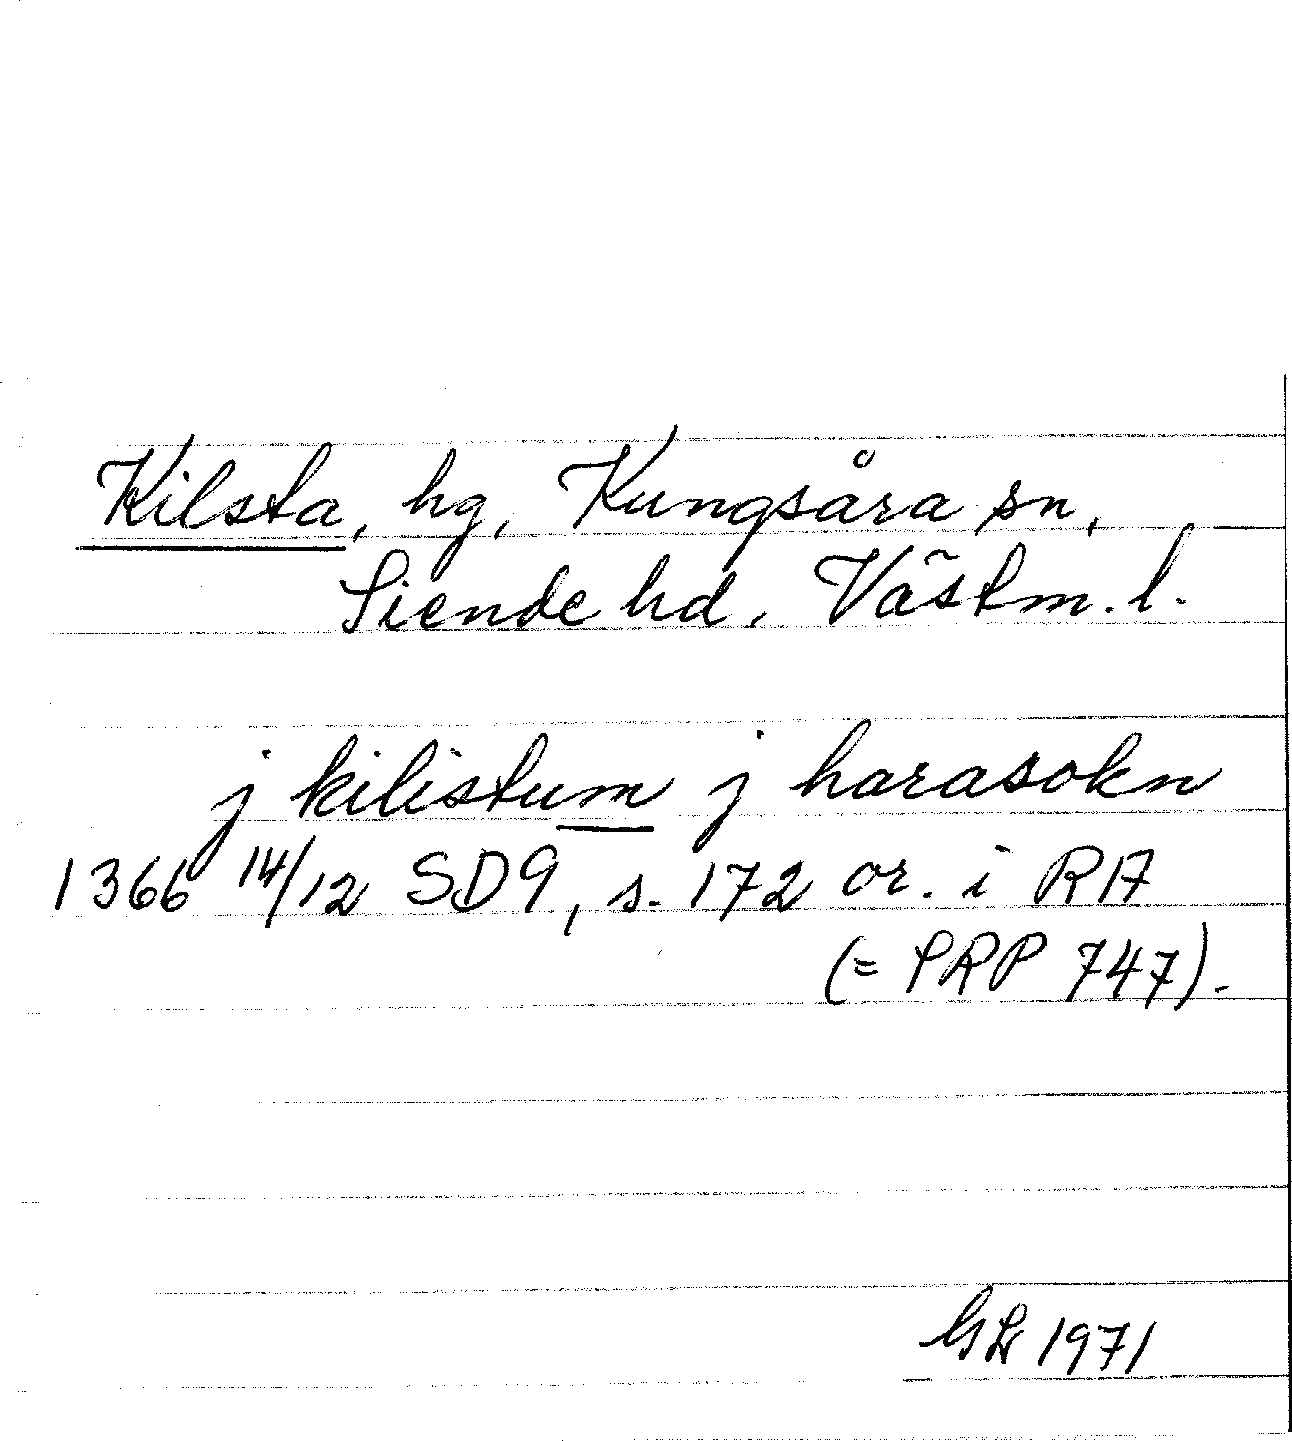 Kilsta, hg, Kungsåra sn,
Siende hd, Västm. l.
j kilistum j harasokn
1366 14/12 SD9, s. 172 or. i RA
(= PRP 747).
1971